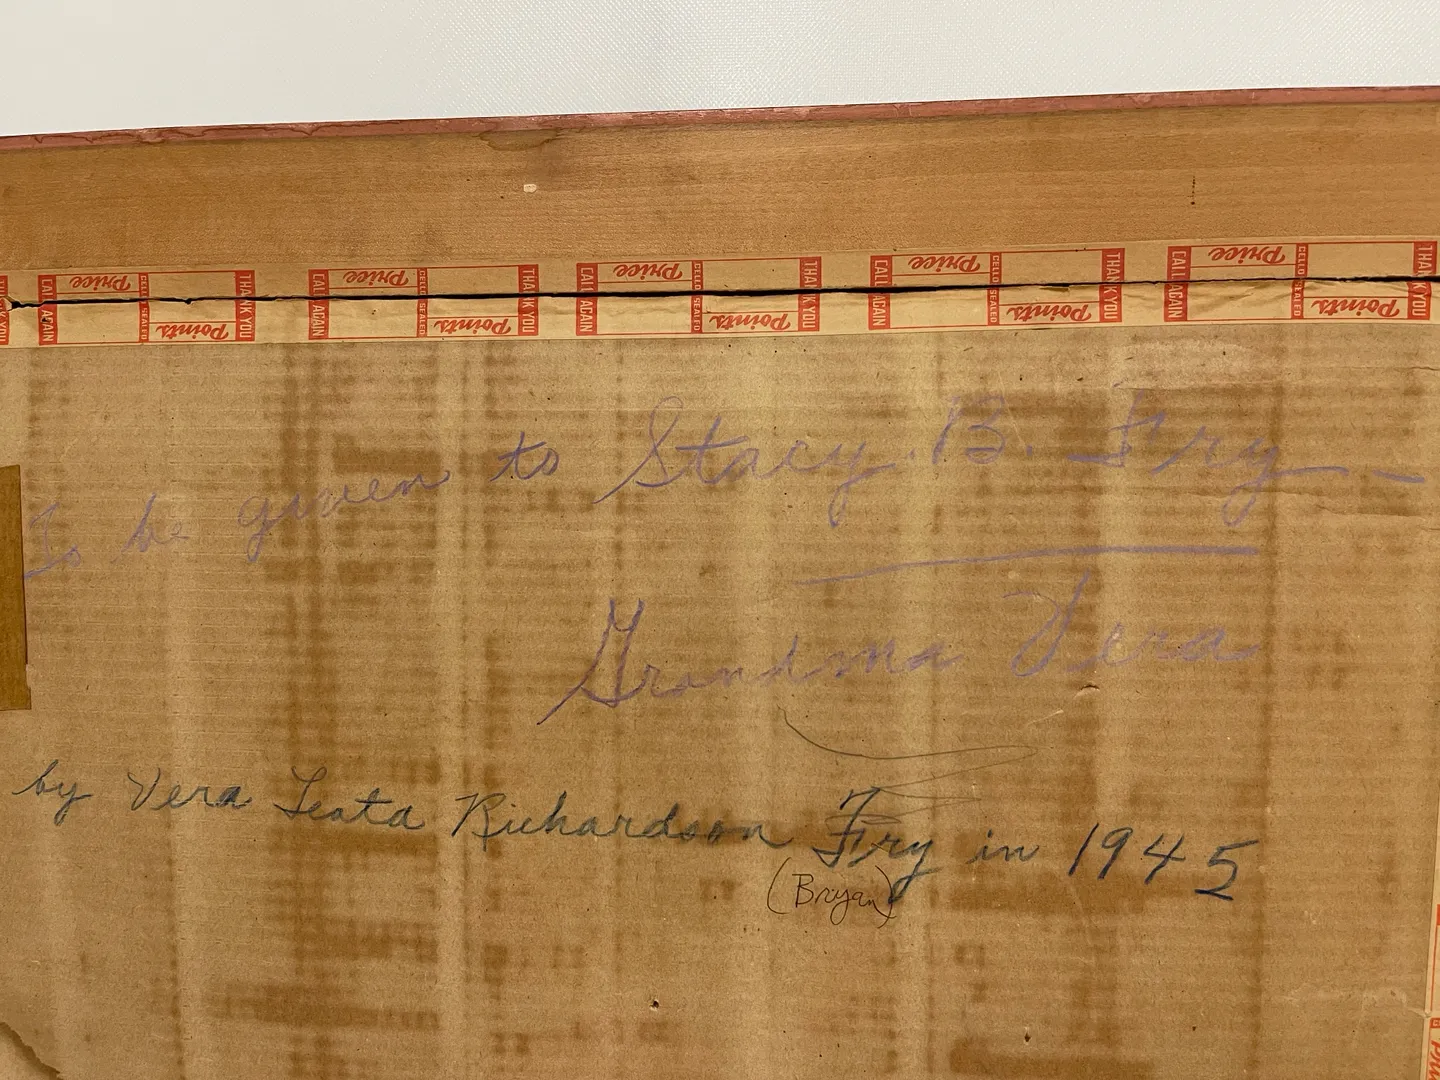 CALL AGAIN Price CELLO SEALED Points THANK YOU CALL AGAIN Price CELLO SEALED Points THANK YOU CALL AGAIN Price CELLO SEALED Points THANK YOU CALL AGAIN Price CELLO SEALED Points THANK YOU CALL AGAIN Price CELLO SEALED Points THANK YOU
To be given to Stacy. B. Fry —
Grandma Vera
by Vera Leota Richardson Fry in 1945
(Bryan)